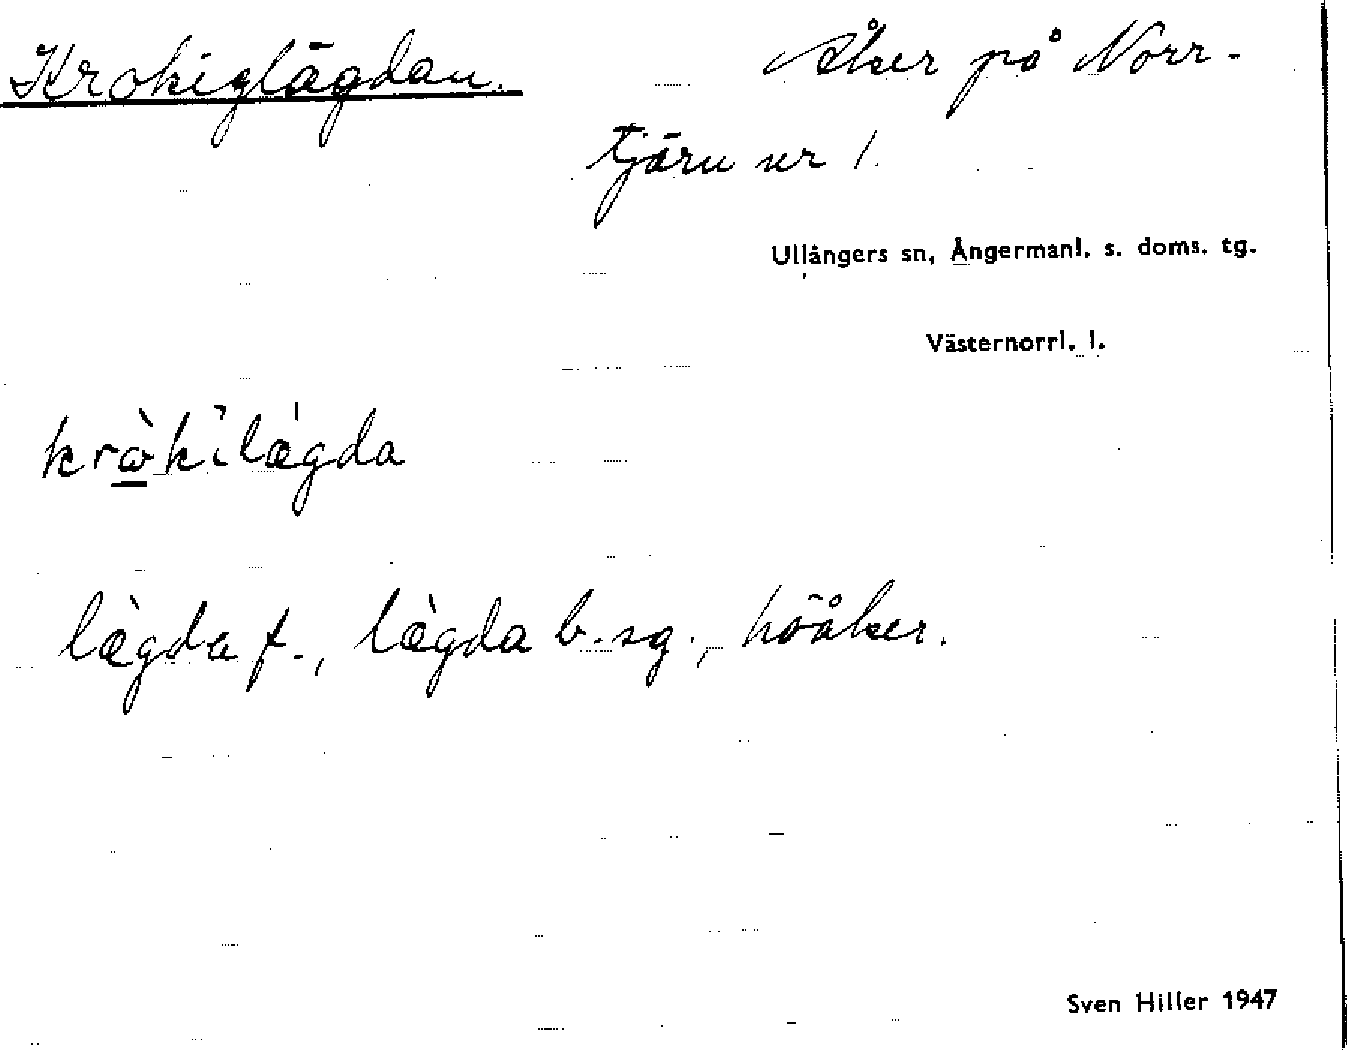 Krokiglägdan. Åker på Norr-
tjärn nr 1.
Ullångers sn, Ångermanl. s. doms. tg.
Västernorrl. l.
krὼkilægda
lægda f., lægda b. sg., höåker.
Sven Hiller 1947